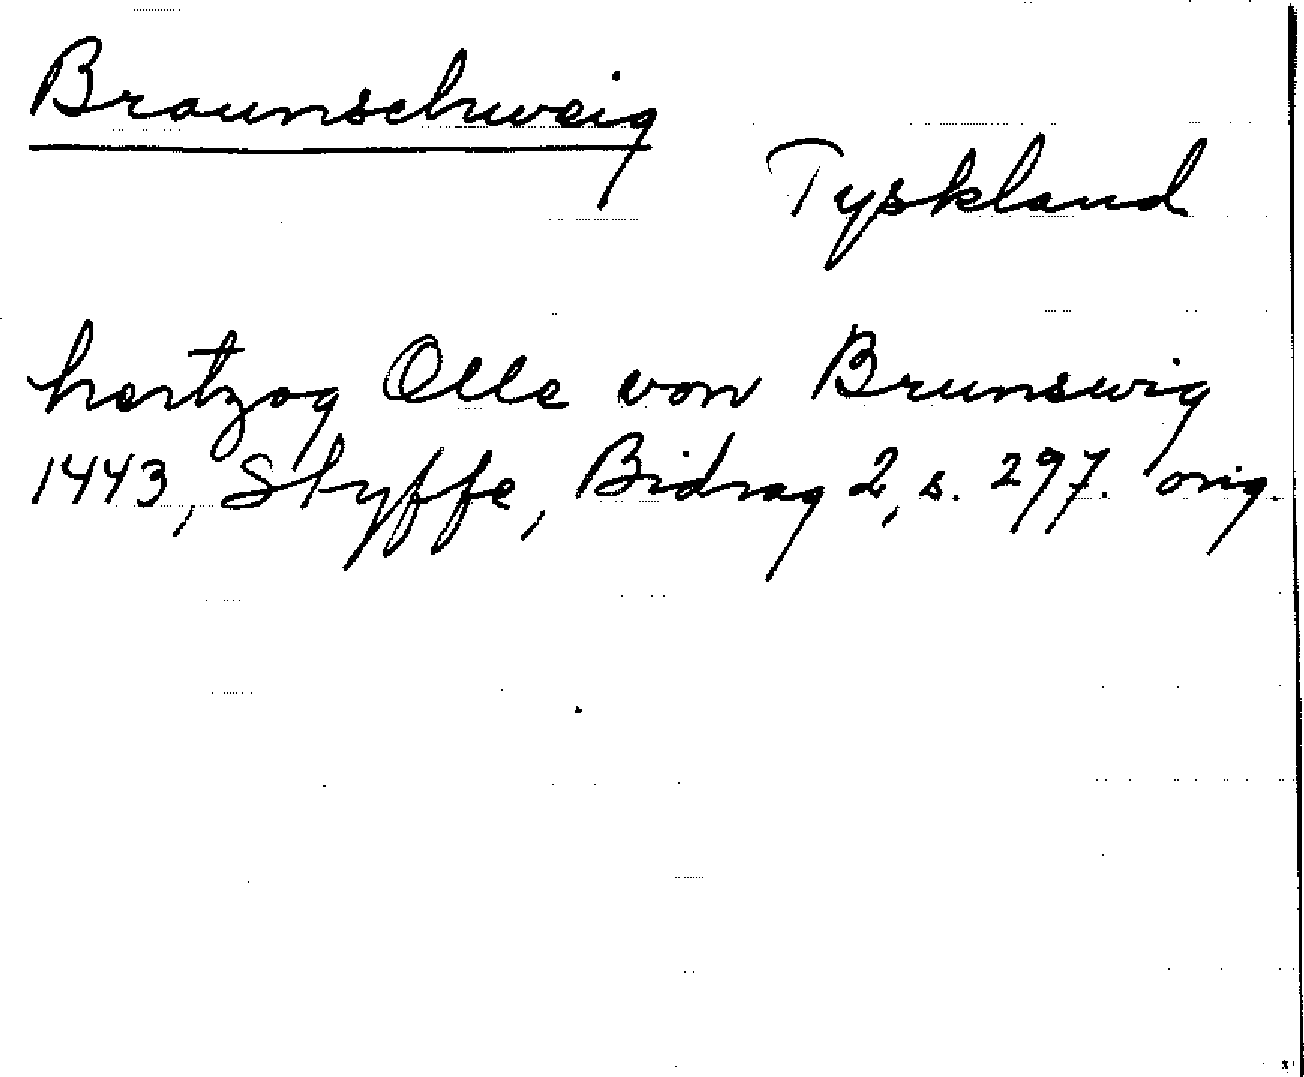 Braunschweig
Tyskland
hertzog Olle von Brunswig
1443, Styffe, Bidrag 2, s. 297. orig.